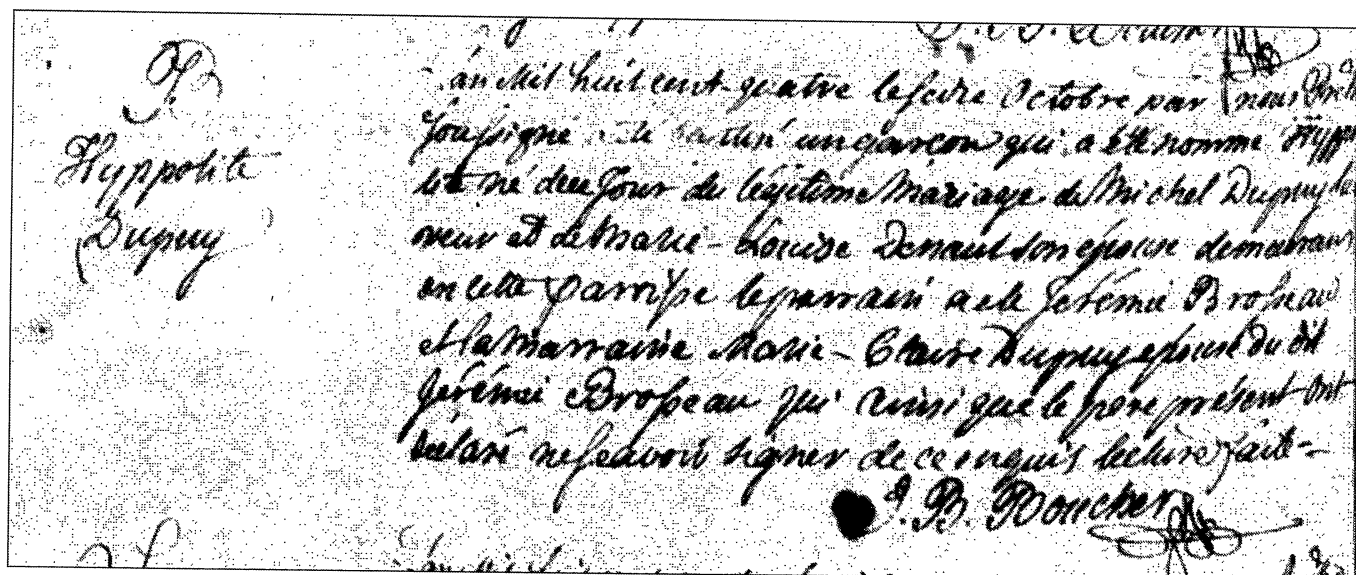 B
Hyppolite
Dupuy
án Mil huit cent-quatre le seize Octobre par nous
soussigné été baptisé un garçon qui a été nommé Hyppo
lite né de ce jour du légitime Mariage de Michel Dupuy
neur et de Marie-Louise Denault son épouse demeurant
en cette Parroisse le parrain a été Jérémie Brosseau
et la Marraine Marie-Claire Dupuy épouse du dit
Jérémie Brosseau qui ainsi que le père présent ont
déclaré ne sçavoir signer de ce enquis lecture faite-
J. B. Boucher